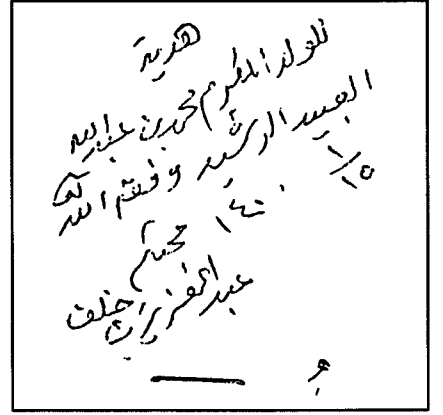 هدية
للولد المكرم محمد بن عبدالله
العبيد الرشيد وفقه الله
١٥/١
١٤٠٠
محبكم
عبدالعزيز خلف